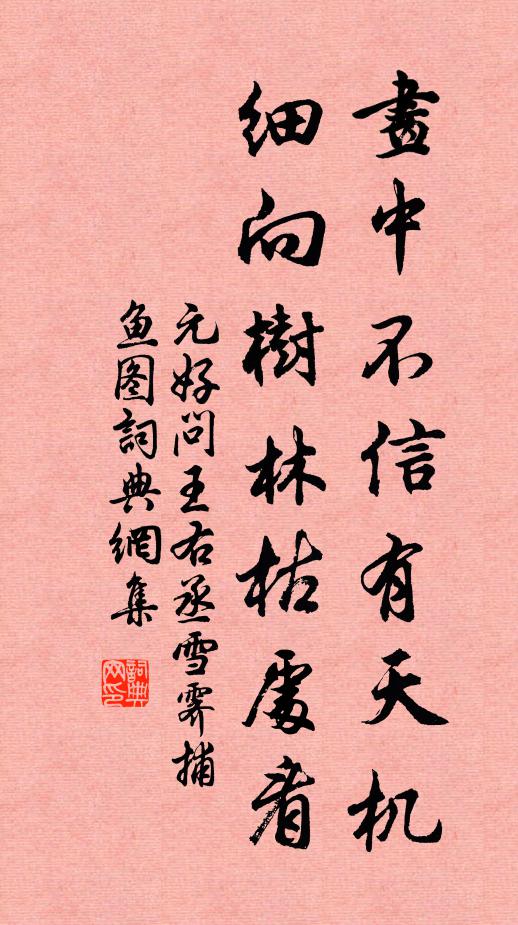 畫中不信有天机
細向樹林枯處看
元好问王右丞雪霽捕
鱼图詞典網集
詞典网印